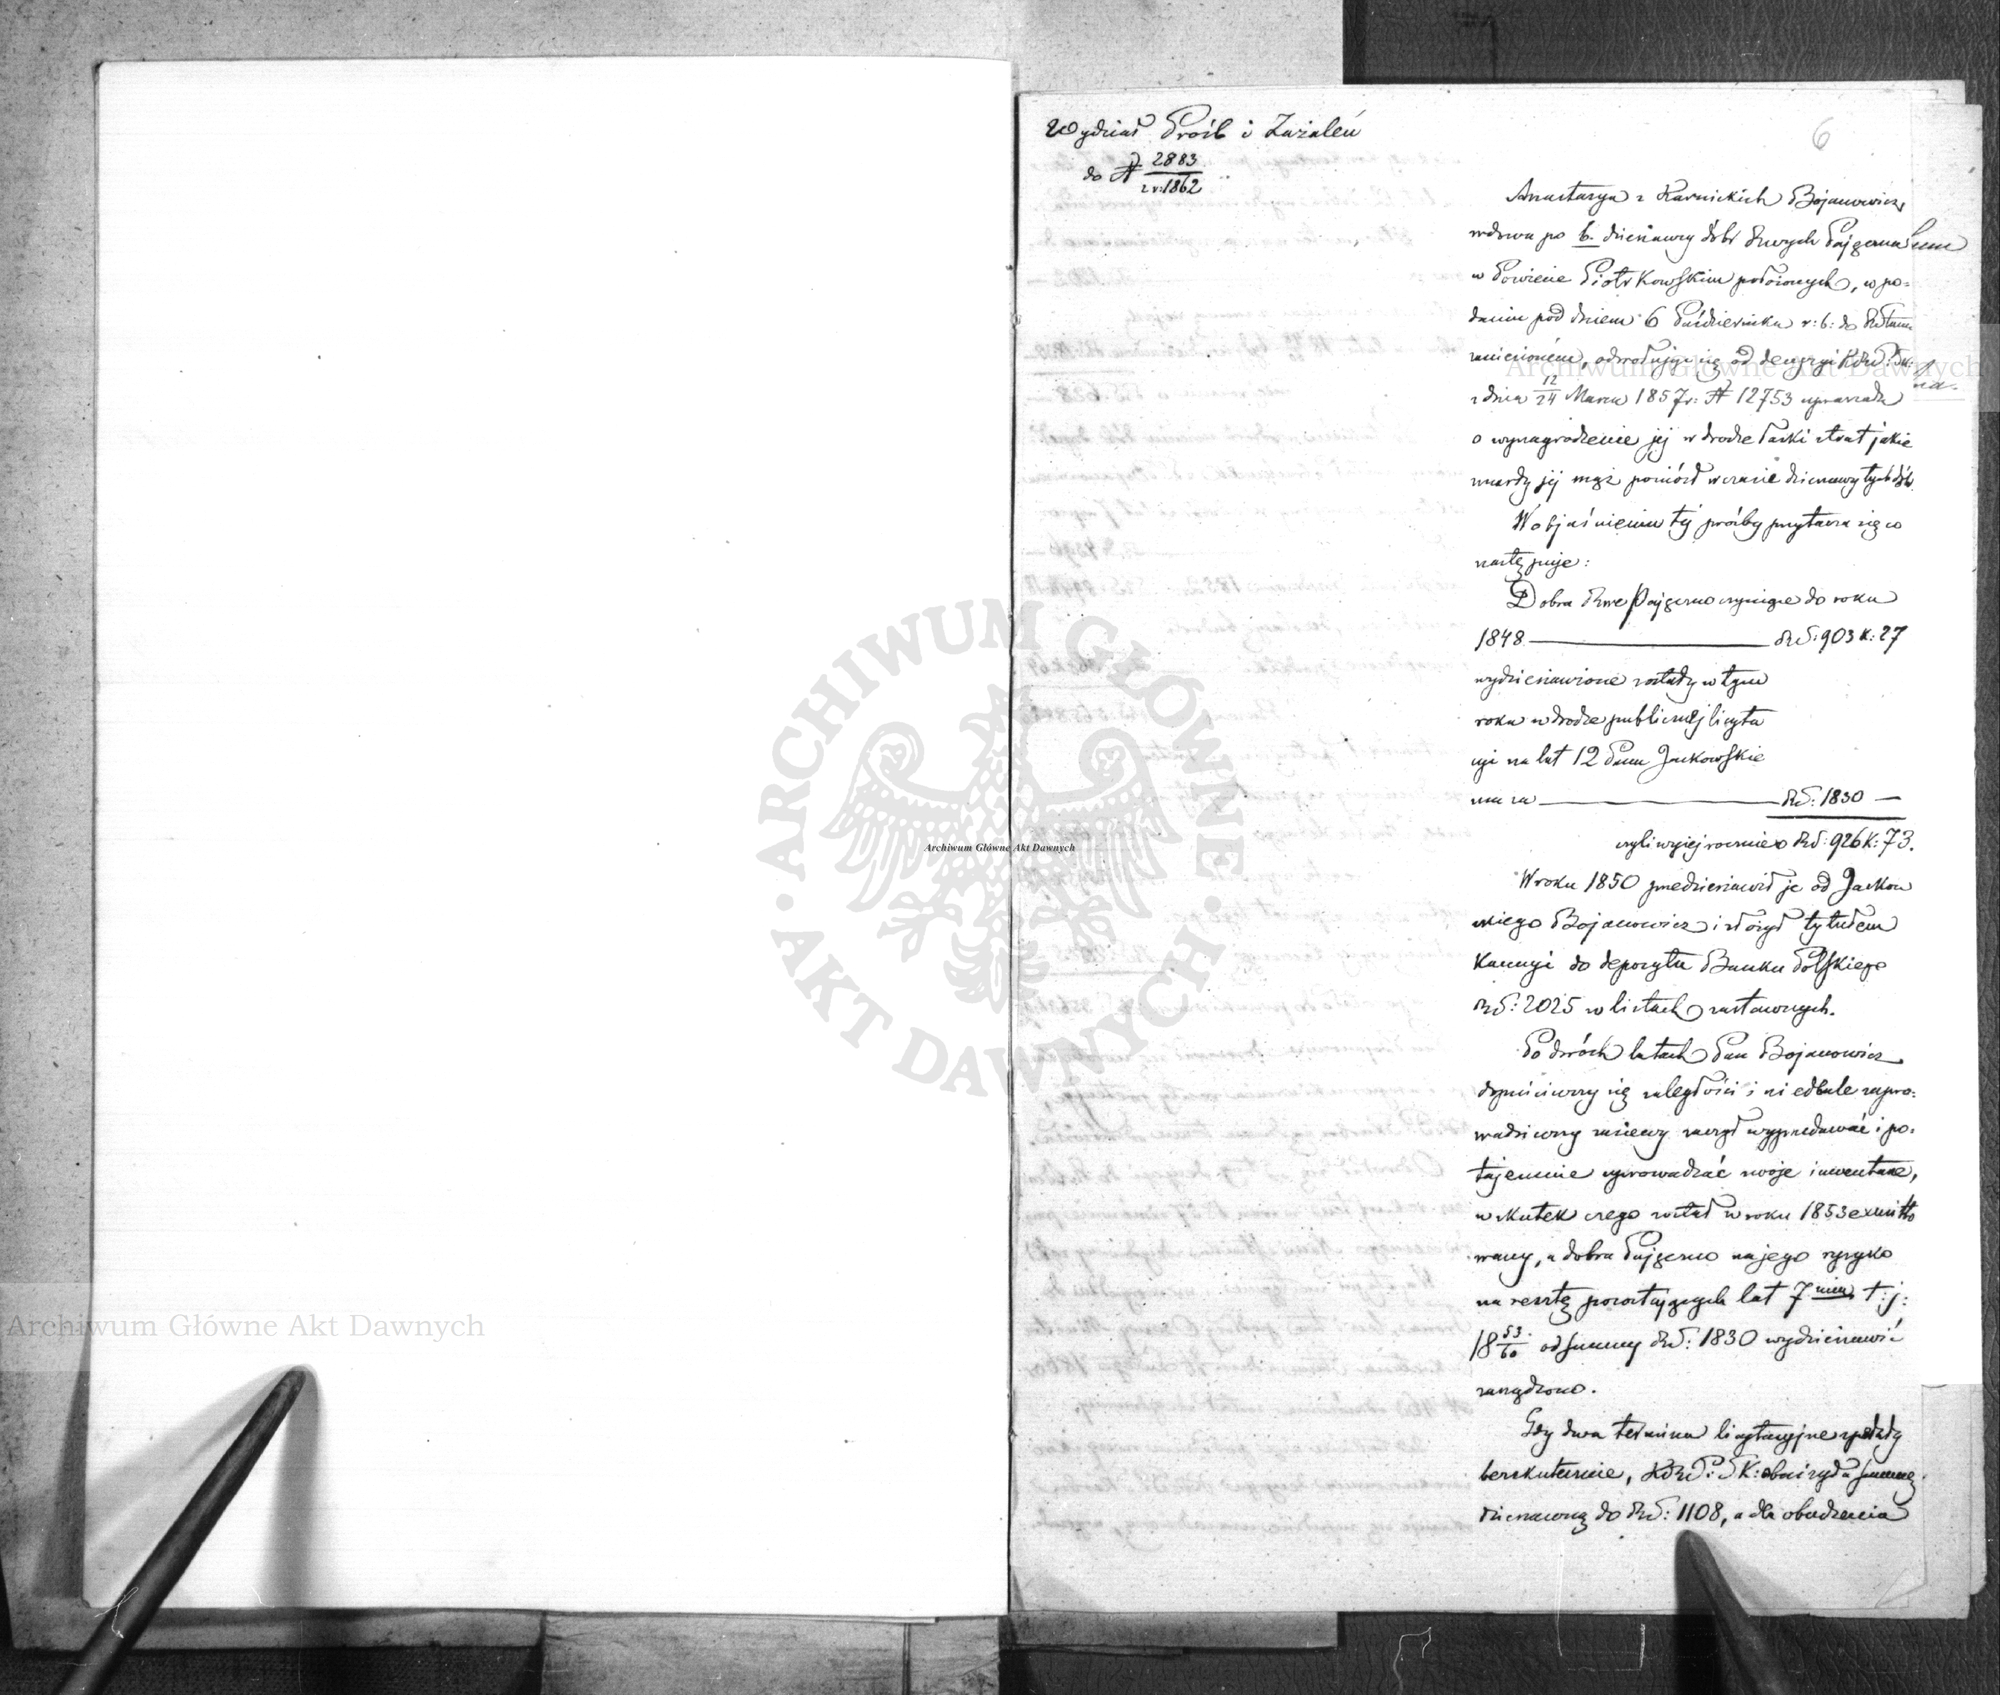 6
Wydział Próśb i Zażaleń
do N 2883
z r: 1862
Anastazya z Karnickich Bojanowicz,
wdowa po b. dzierżawcy dóbr Rwych Pajęczna
w Powiecie Piotrkowskim położonych, w po-
daniu pod dniem 6 Października r: b: do
zaniesioném, odwołując się od decyzyi KRzP:Sk:
z dnia 12/24 Marca 1857 r: N 12753 uprasza
o wynagrodzenie jej w drodze łaski strat jakie
zmarły jej mąż poniósł w czasie dzierżawy tych dób
W objaśnieniu téj prośby przytacza się co
następuje:
Dobra Rwe Pajęczno czyniące do roku
1848 ——— Rs: 903 k: 27
wydzierżawione zostały w tym
roku w drodze publicznej licyta
cyi na lat 12 Panu Jackowskie
mu za ——— Rs: 1830 —
czyli więcej rocznie o Rs: 926 k: 73.
W roku 1850 przedzierżawił je od Jackow
skiego Bojanowicz i złożył tytułem
Kaucyi do depozytu Banku Polskiego
Rs: 2025 w listach zastawnych.
Po dwóch latach Pan Bojanowicz
dopuściwszy się zaległości i niedbale zapro-
wadziwszy zasiewy zaczął wyprzedawać i po-
tajemnie uprowadzać swoje inwentarze,
w skutek czego został w roku 1853 exmitto
wany, a dobra Pajęczno na jego ryzyko
na resztę pozostających lat 7miu t: j:
18 53/60 od summy Rs: 1830 wydzierżawić
zarządzono.
Gdy dwa termina licytacyjne spełzły
bezskutecznie, KRzP: SK: obniżyła summę
dzierżawną do Rs: 1108, a dla obudzenia
Archiwum Główne Akt Dawnych
Archiwum Główne Akt Dawnych
Archiwum Główne Akt Dawnych
ARCHIWUM GŁÓWNE · AKT DAWNYCH ·